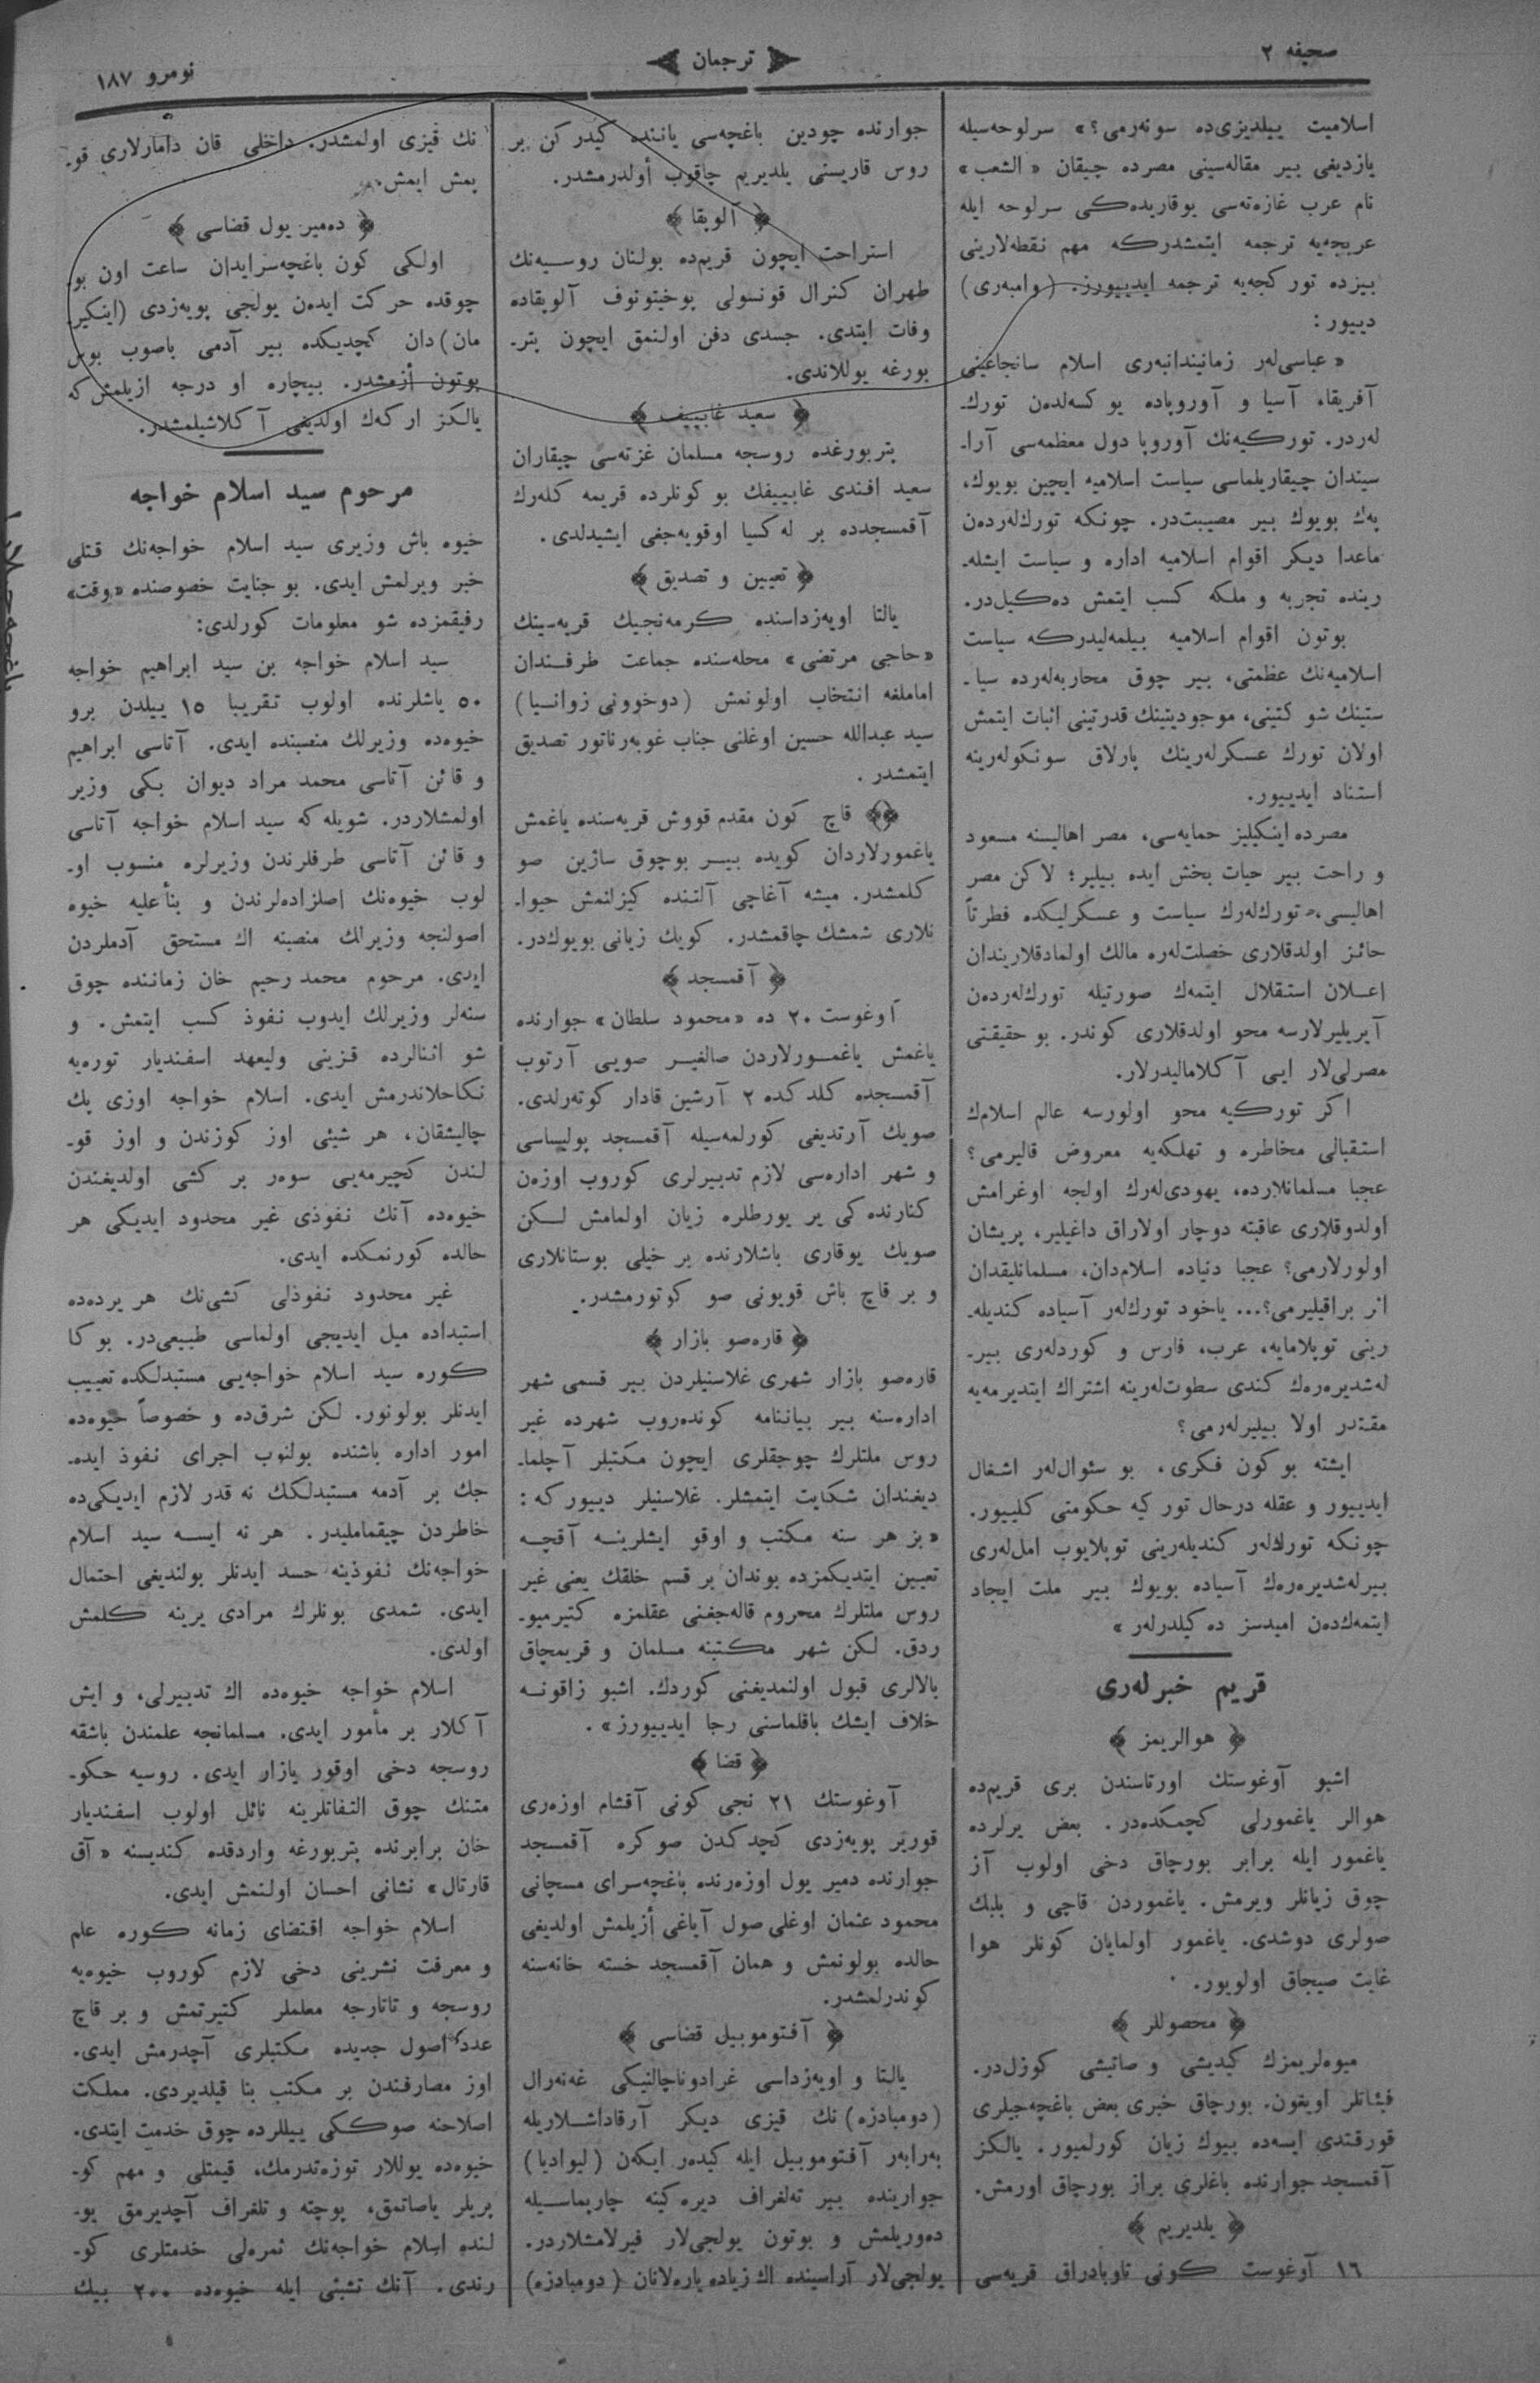 صحيفه ٢
ترجمان
نومرو ١٨٧
اسلاميت ييلديزى‌ده سونه‌رمى؟» سرلوحه‌سيله
يازديغى بير مقاله‌سينى مصرده چيقان «الشعب»
نام عرب غازه‌ته‌سى يوقاريده‌كى سرلوحه ايله
عربجه‌يه ترجمه ايتمشدركه مهم نقطه‌لارينى
بيزده توركجه‌يه ترجمه ايدييورز. (وامبه‌رى)
دييور:
«عباسى‌لەر زمانيندانبه‌رى اسلام سانجاغينى
آفريقا، آسيا و آوروپاده يوكسه‌لده‌ن تورك‌ـ
له‌ردر. توركيه‌نك آوروپا دول معظمه‌سى آراـ
سيندان چيقاريلماسى سياست اسلاميه ايچين بويوك،
پك بويوك بير مصيبت‌در. چونكه تورك‌له‌رده‌ن
ماعدا ديكر اقوام اسلاميه اداره و سياست ايشله‌ـ
رينده تجربه و ملكه كسب ايتمش ده‌كيل‌در.
بوتون اقوام اسلاميه بيلمه‌ليدركه سياست
اسلاميه‌نك عظمتى، بير چوق محاربه‌له‌رده سياـ
ستينك شوكتينى، موجوديتينك قدرتينى اثبات ايتمش
اولان تورك عسكرله‌رينك پارلاق سونكوله‌رينه
استناد ايدييور.
مصرده اينكيليز حمايه‌سى، مصر اهاليسنه مسعود
و راحت بير حيات بخش ايده بيلير؛ لاكن مصر
اهاليسى، تورك‌له‌رك سياست و عسكرليكده فطرتاً
حائز اولدقلارى خصلت‌له‌ره مالك اولمادقلاريندان
اعلان استقلال ايتمه‌ك صورتيله تورك‌له‌رده‌ن
آيريليرلارسه محو اولدقلارى كوندر. بو حقيقتى
مصرلى‌لار ايى آكلاماليدرلار.
اكر توركيه محو اولورسه عالم اسلام‌ك
استقبالى مخاطره و تهلكه‌يه معروض قاليرمى؟
عجبا مسلمانلارده، يهودى‌له‌رك اولجه اوغرامش
اولدوقلارى عاقبته دوچار اولاراق داغيلير، پريشان
اولورلارمى؟ عجبا دنياده اسلام‌دان، مسلمانليقدان
اثر براقيليرمى؟... ياخود تورك‌له‌ر آسياده كنديله‌ـ
رينى توپلامايه، عرب، فارس و كوردله‌رى بيرـ
له‌شديره‌ره‌ك كندى سطوت‌له‌رينه اشتراك ايتديرمه‌يه
مقتدر اولا بيليرله‌رمى؟
ايشته بوكون فكرى، بو سئوال‌له‌ر اشغال
ايدييور و عقله درحال توركيه حكومتى كلييور.
چونكه تورك‌له‌ر كنديله‌رينى توپلايوب امل‌له‌رى
بيرله‌شديره‌ره‌ك آسياده بويوك بير ملت ايجاد
ايتمه‌ك‌ده‌ن اميدسز ده‌كيلدرله‌ر»
قريم خبرله‌رى
﴿ هوالريمز ﴾
اشبو آوغوستك اورتاسندن برى قريم‌ده
هوالر ياغمورلى كچمكده‌در. بعض يرلرده
ياغمور ايله برابر بورچاق دخى اولوب آز
چوق زيانلر ويرمش. ياغموردن قاچى و بلبك
صولرى دوشدى. ياغمور اولمايان كونلر هوا
غايت صيجاق اولويور.
﴿ محصوللر ﴾
ميوه‌لريمزك كيديشى و صاتيشى كوزل‌در.
فيئاتلر اويغون. بورچاق خبرى بعض باغچه‌جيلرى
قورقتدى ايسه‌ده بيوك زيان كورلميور. يالكز
آقمسجد جوارنده باغلرى براز بورچاق اورمش.
﴿ يلديريم ﴾
١٦ آوغوست كونى تاوبادراق قريه‌سى
جوارنده چودين باغچه‌سى ياننده كيدركن بر
روس قاريسنى يلديريم چاقوب أولدرمشدر.
﴿ آلوبقا ﴾
استراحت ايچون قريم‌ده بولنان روسيه‌نك
طهران كنرال قونسولى پوختونوف آلوبقاده
وفات ايتدى. جسدى دفن اولنمق ايچون پترـ
بورغه يوللاندى.
﴿ سعيد غابييف ﴾
پتربورغده روسجه مسلمان غزته‌سى چيقاران
سعيد افندى غابييفك بوكونلرده قريمه كله‌رك
آقمسجدده بر له‌كسيا اوقويه‌جغى ايشيدلدى.
﴿ تعيين و تصديق ﴾
يالتا اويه‌زداسنده كرمه‌نجيك قريه‌سينك
«حاجى مرتضى» محله‌سنده جماعت طرفندان
اماملغه انتخاب اولونمش (دوخوونى زوانيا)
سيد عبدالله حسين اوغلنى جناب غوبه‌رناتور تصديق
ايتمشدر.
﴿﴾ قاچ كون مقدم قووش قريه‌سنده ياغمش
ياغمورلاردان كويده بير بوچوق ساژين صو
كلمشدر. ميشه آغاچى آلتنده كيزلنمش حيواـ
نلارى شمشك چاقمشدر. كويك زيانى بويوك‌در.
﴿ آقمسجد ﴾
آوغوست ٢٠ ده «محمود سلطان» جوارنده
ياغمش ياغمورلاردن صالغير صويى آرتوب
آقمسجده كلدكده ٢ آرشين قادار كوته‌رلدى.
صويك آرتديغى كورلمه‌سيله آقمسجد پوليساسى
و شهر اداره‌سى لازم تدبيرلرى كوروب اوزه‌ن
كنارنده‌كى ير يورطلره زيان اولمامش لكن
صويك يوقارى باشلارنده بر خيلى بوستانلارى
و بر قاچ باش قويونى صو كوتورمشدر.
﴿ قاره‌صو بازار ﴾
قاره‌صو بازار شهرى غلاسنيلردن بير قسمى شهر
اداره‌سنه بير بياننامه كونده‌روب شهرده غير
روس ملتلرك چوجقلرى ايچون مكتبلر آچلماـ
ديغندان شكايت ايتمشلر. غلاسنيلر دييوركه:
«بز هر سنه مكتب و اوقو ايشلرينه آقچه
تعيين ايتديكمزده بوندان بر قسم خلقك يعنى غير
روس ملتلرك محروم قاله‌جغنى عقلمزه كتيرميوـ
ردق. لكن شهر مكتبنه مسلمان و قريمچاق
بالالرى قبول اولنمديغنى كوردك. اشبو زاقونه
خلاف ايشك باقلماسنى رجا ايدييورز».
﴿ قضا ﴾
آوغوستك ٢١ نجى كونى آقشام اوزه‌رى
قورير پويه‌زدى كچدكدن صوكره آقمسجد
جوارنده دمير يول اوزه‌رنده باغچه‌سراى مسچانى
محمود عثمان اوغلى صول آياغى أزيلمش اولديغى
حالده بولونمش و همان آقمسجد خسته خانه‌سنه
كوندرلمشدر.
﴿ آفتوموبيل قضاسى ﴾
يالتا و اويه‌زداسى غرادوناچالنيكى غه‌نه‌رال
(دومبادزه) نك قيزى ديكر آرقاداشلاريله
به‌رابه‌ر آفتوموبيل ايله كيده‌ر ايكه‌ن (ليواديا)
جوارينده بير ته‌لغراف ديره‌كينه چارپماسيله
ده‌وريلمش و بوتون يولجى‌لار فيرلامشلاردر.
يولجى‌لار آراسينده اك زياده ياره‌لانان (دومبادزه)
نك قيزى اولمشدر. داخلى قان دامارلارى قوـ
پمش ايمش.
﴿ ده‌مير يول قضاسى ﴾
اولكى كون باغچه‌سرايدان ساعت اون بوـ
چوقده حركت ايده‌ن يولجى پويه‌زدى (اينكيرـ
مان) دان كچديكده بير آدمى باصوب بوس
بوتون أزمشدر. بيچاره او درجه ازيلمش كه
يالكز اركه‌ك اولديغى آكلاشيلمشدر.
مرحوم سيد اسلام خواجه
خيوه باش وزيرى سيد اسلام خواجه‌نك قتلى
خبر ويرلمش ايدى. بو جنايت خصوصنده «وقت»
رفيقمزده شو معلومات كورلدى:
سيد اسلام خواجه بن سيد ابراهيم خواجه
٥٠ ياشلرنده اولوب تقريبا ١٥ ييلدن برو
خيوه‌ده وزيرلك منصبنده ايدى. آتاسى ابراهيم
و قائن آتاسى محمد مراد ديوان بكى وزير
اولمشلاردر. شويله كه سيد اسلام خواجه آتاسى
و قائن آتاسى طرفلرندن وزيرلره منسوب اوـ
لوب خيوه‌نك اصلزاده‌لرندن و بنأعليه خيوه
اصولنجه وزيرلك منصبنه اك مستحق آدملردن
ايدى. مرحوم محمد رحيم خان زماننده چوق
سنه‌لر وزيرلك ايدوب نفوذ كسب ايتمش. و
شو اثنالرده قزينى وليعهد اسفنديار توره‌يه
نكاحلاندرمش ايدى. اسلام خواجه اوزى يك
چاليشقان، هر شيئى اوز كوزندن و اوز قوـ
لندن كچيرمه‌يى سوه‌ر بر كشى اولديغندن
خيوه‌ده آنك نفوذى غير محدود ايديكى هر
حالده كورنمكده ايدى.
غير محدود نفوذلى كشى‌نك هر يرده‌ده
استبداده ميل ايديجى اولماسى طبيعى‌در. بوكا
كوره سيد اسلام خواجه‌يى مستبدلكده تعييب
ايدنلر بولونور. لكن شرق‌ده و خصوصاً خيوه‌ده
امور اداره باشنده بولنوب اجراى نفوذ ايده‌ـ
جك بر آدمه مستبدلكك نه قدر لازم ايديكى‌ده
خاطردن چيقمامليدر. هر نه ايسه سيد اسلام
خواجه‌نك نفوذينه حسد ايدنلر بولنديغى احتمال
ايدى. شمدى بونلرك مرادى يرينه كلمش
اولدى.
اسلام خواجه خيوه‌ده اك تدبيرلى، و ايش
آكلار بر مأمور ايدى. مسلمانجه علمندن باشقه
روسجه دخى اوقور يازار ايدى. روسيه حكوـ
متنك چوق التفاتلرينه نائل اولوب اسفنديار
خان برابرنده پتربورغه واردقده كنديسنه «آق
قارتال» نشانى احسان اولنمش ايدى.
اسلام خواجه اقتضاى زمانه كوره علم
و معرفت نشرينى دخى لازم كوروب خيوه‌يه
روسجه و تاتارجه معلملر كتيرتمش و بر قاچ
عدد اصول جديده مكتبلرى آچدرمش ايدى.
اوز مصارفندن بر مكتب بنا قيلديردى. مملكت
اصلاحنه صوككى ييللرده چوق خدمت ايتدى.
خيوه‌ده يوللار توزه‌تدرمك، قيمتلى و مهم كوـ
بريلر ياصاتمق، پوچته و تلغراف آچديرمق يوـ
لنده اسلام خواجه‌نك ثمره‌لى خدمتلرى كوـ
رندى. آنك تشبثى ايله خيوه‌ده ٢٠٠ بيك